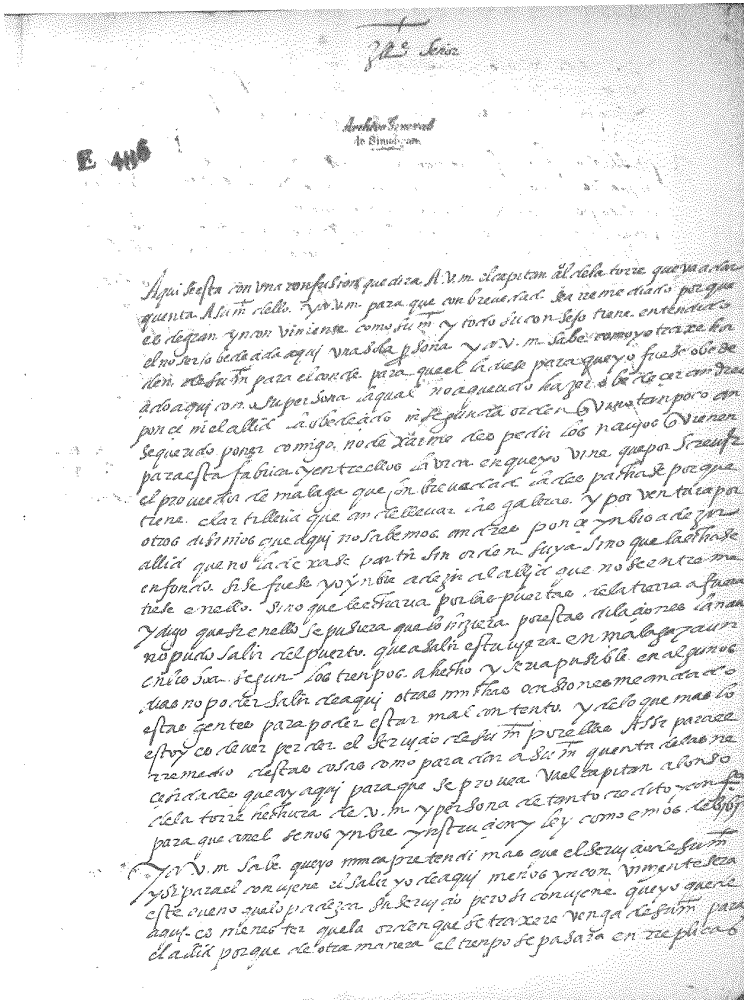 Señor
Archivo General
de Simancas
E. 486
Aqui se esta con una confusion que dira A V.m. el capitan al.º dela torre que va a dar
quenta A su m.d dello. y A V.m. para que con brevedad sea rremediado por que
es de gran ynconviniente como su m.d y todo su consejo tiene entendido
el no ser obedecida aqui una sola persona y ya V.m. sabe como yo traxe
orden de su m.d para el conde para que el la diese para que yo fuese obede
cido aqui con su persona la qual no a querido hazer obedecer andrea
ponce ni el allid la obedecido ni segunda orden tanpoco an
se querido poner comigo, no de xarme de pedir los navios que vienen
para esta fabrica y entrellos la urca en que yo vine que por screvir
el proveedor de malaga que con brevedad la despachase porque
tiene el artilleria que an de llevar las galeras. y por ventura por
otros disinios que aqui no sabemos andrea ponce ynbio a dezir
allid que no la dexase partir sin orden suya sino que la echase
en fondo si se fuese yo ynbie a dezir al allid que no se entreme
tiese en ello. sino que le echaria por las puertas de la tierra a fuera
y digo que si en ello se pusiera que lo hiziera por estas dilaciones la nao
no pudo salir del puerto. que a salir estuviera en malaga y aun
segun los tienpos a hecho y sera pusible en algunos
dias no poder salir de aqui otras muchas ocasiones me an dado
estas gentes para poder estar mal contento. y de lo que mas lo
estoy es de ver perder el servicio de su m.d por ellas Assi para el
rremedio destas cosas como para dar a su m.d quenta de las ne
cesidades que ay aqui para que se provea va el capitan alonso
dela torre hechura de V.m y persona de tanto credito y
para que con el se nos ynbie ynstrucion y ley como emos de
Ya V.m sabe que yo nunca pretendi mas que el servicio de su m.d
y si para el conviene el salir yo de aqui menos ynconviniente sera
este bueno que lo padezca su servicio pero si conviene que yo quede
aqui. es menester que la orden que se traxere venga de su m.d para
el allid porque de otra manera el tienpo se pasara en rreplicas